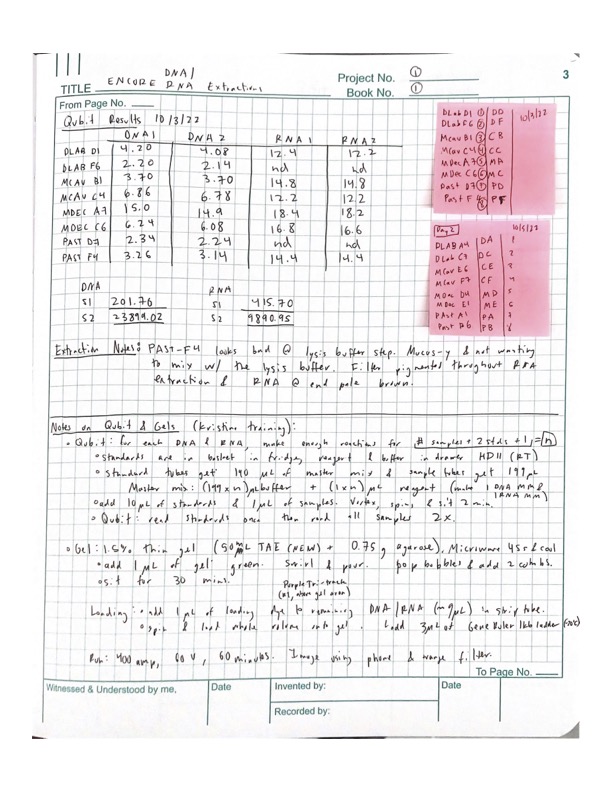 DNA/
TITLE ENCORE RNA Extractions
Project No. 1
Book No. 1
3
From Page No.
Qubit Results 10/3/22
DNA1 DNA2 RNA1 RNA2
DLAB D1 4.20 4.08 12.4 12.2
DLAB F6 2.20 2.14 nd nd
MCAV B1 3.70 3.70 14.8 14.8
MCAV C4 6.86 6.78 12.2 12.2
MDEC A7 15.0 14.9 18.4 18.2
MDEC C6 6.24 6.08 16.8 16.6
PAST D7 2.34 2.24 nd nd
PAST F4 3.26 3.14 14.4 14.4
DLab D1 1 DD 10/3/22
DLab F6 2 DF
Mcav B1 3 CB
Mcav C4 4 CC
MDec A7 5 MA
MDec C6 6 MC
Past D7 7 PD
Past F4 8 PF
Day 2 10/5/22
DLAB A4 DA 1
DLab C7 DC 2
MCav E6 CE 3
MCav F7 CF 4
MDec D4 MD 5
MDec E1 ME 6
PAst A1 PA 7
Past B6 PB 8
DNA RNA
S1 201.76 S1 415.70
S2 23899.02 S2 9890.95
Extraction Notes: PAST-F4 looks bad @ lysis buffer step. Mucus-y & not wanting
to mix w/ the lysis buffer. Filter pigmented throughout RNA
extraction & RNA @ end pale brown.
Notes on Qubit & Gels (Kristina training):
Qubit: for each DNA & RNA, make enough reactions for # samples + 2 stds + 1 = n
standards are in basket in fridge, reagent & buffer in drawer HD11 (RT)
standard tubes get 190 µL of master mix & sample tubes get 199 µL
Master mix: (199 x n) µL buffer + (1 x n) µL reagent (make 1 DNA MM & 1 RNA MM)
add 10 µL of standards & 1 µL of samples. Vortex, spin, & sit 2 min.
Qubit: read standards once then read all samples 2x.
Gel: 1.5% thin gel (50 mL TAE (NEW) + 0.75 g agarose), Microwave 45s & cool
add 1 µL of gel green. Swirl & pour. pop bubbles & add 2 combs.
sit for 30 mins.
Purple Tri-track
(RT, near gel area)
Loading: add 1 µL of loading dye to remaining DNA/RNA (~9 µL) in strip tube.
spin & load whole volume onto gel. Ladd 3 µL of GeneRuler 1kb ladder (-20C)
Run: 400 amp, 60 V, 60 minutes. Image using phone & orange filter.
To Page No.
Witnessed & Understood by me,
Date
Invented by:
Date
Recorded by: